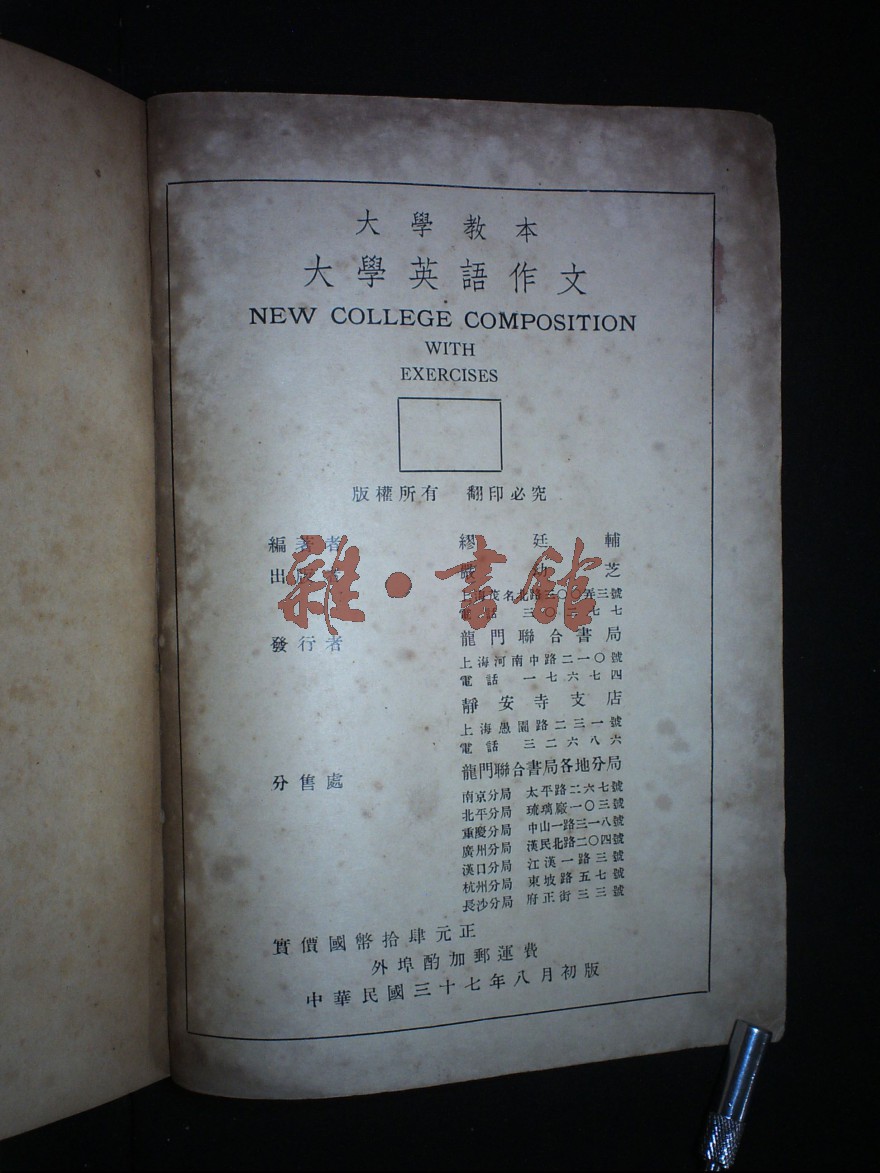 大學教本
大學英語作文
NEW COLLEGE COMPOSITION
WITH
EXERCISES
版權所有 翻印必究
編著者 繆廷輔
出版者 嚴幼芝
上海茂名北路三〇〇弄三號
電話 三〇三七七
發行者 龍門聯合書局
上海河南中路二一〇號
電話 一七六七四
靜安寺支店
上海愚園路二三一號
電話 三二六八六
分售處 龍門聯合書局各地分局
南京分局 太平路二六七號
北平分局 琉璃廠一〇三號
重慶分局 中山一路三一八號
廣州分局 漢民北路二〇四號
漢口分局 江漢一路三號
杭州分局 東坡路五七號
長沙分局 府正街三三號
實價國幣拾肆元正
外埠酌加郵運費
中華民國三十七年八月初版
雜·書館